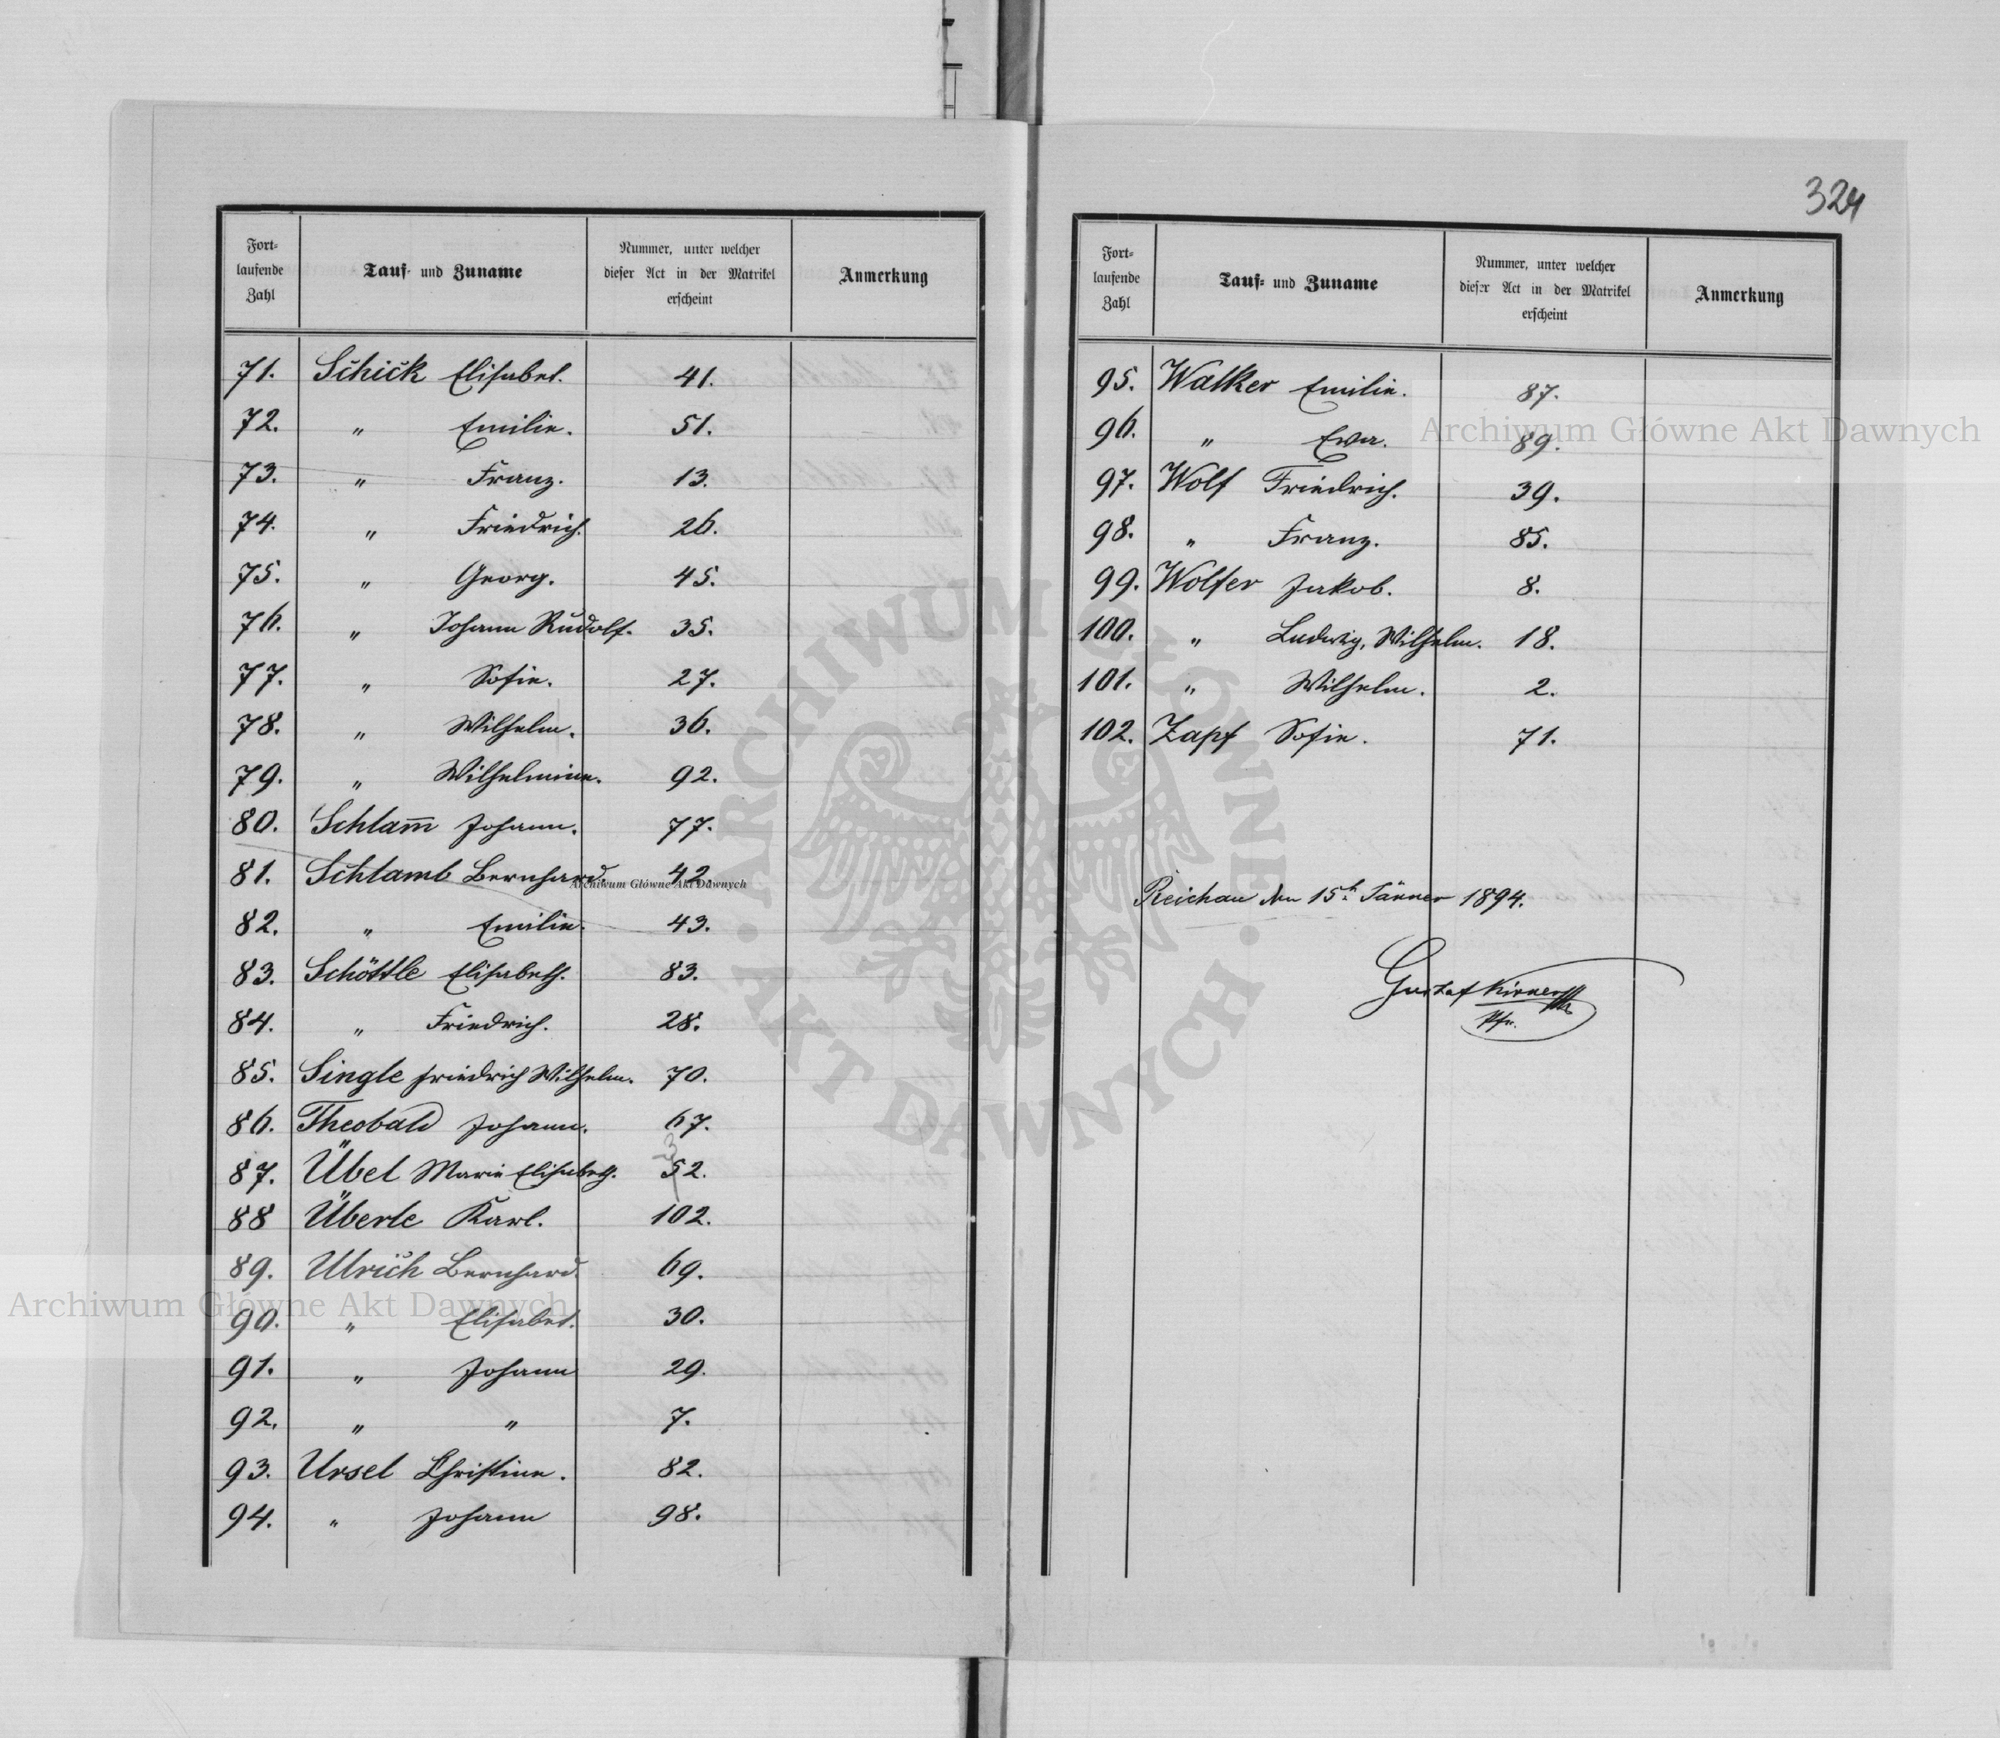 324
Fort-
laufende
Zahl
Tauf- und Zuname
Nummer, unter welcher
dieser Act in der Matrikel
erscheint
Anmerkung
71. Schick Elisabet. 41.
72. " Emilie. 51.
73. " Franz. 13.
74. " Friedrich. 26.
75. " Georg. 45.
76. " Johann Rudolf. 35.
77. " Sofie. 27.
78. " Wilhelm. 36.
79. " Wilhelmine. 92.
80. Schlam̅ Johann. 77.
81. Schlamb Bernhard. 42.
82. " Emilie. 43.
83. Schöttle Elisabeth. 83.
84. " Friedrich. 28.
85. Single Friedrich Wilhelm. 70.
86. Theobald Johann. 67.
87. Übel Marie Elisabeth. 52.
88 Überle Karl. 102.
89. Ulrich Bernhard. 69.
90. " Elisabet. 30.
91. " Johann 29.
92. " " 7.
93. Ursel Christine. 82.
94. " Johann 98.
Fort-
laufende
Zahl
Tauf- und Zuname
Nummer, unter welcher
dieser Act in der Matrikel
erscheint
Anmerkung
95. Walker Emilie. 87.
96. " Eva. 89.
97. Wolf Friedrich. 39.
98. " Franz. 85.
99. Wolfer Jakob. 8.
100. " Ludwig, Wilhelm. 18.
101. " Wilhelm. 2.
102. Zapf Sofie. 71.
Reichau den 15t. Jänner 1894.
Gustaf
Pfr.
Archiwum Główne Akt Dawnych
Archiwum Główne Akt Dawnych
Archiwum Główne Akt Dawnych
ARCHIWUM GŁÓWNE AKT DAWNYCH